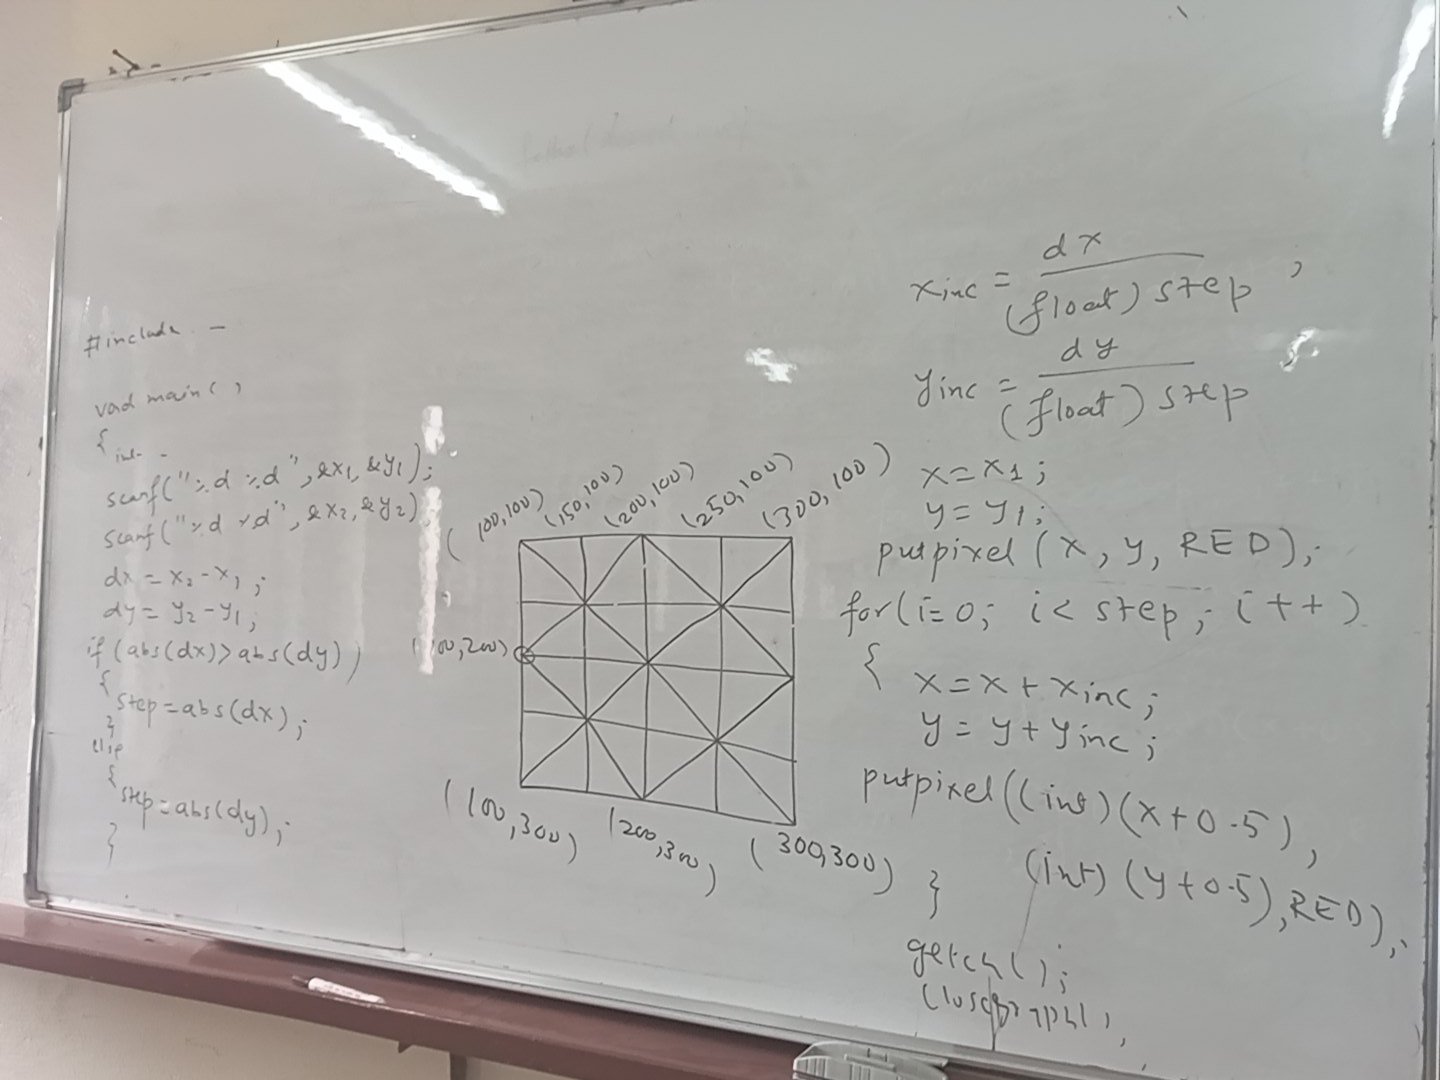 #include. -
void main( )
{
int -
scanf("%d %d", &x1, &y1);
scanf("%d %d", &x2, &y2)
dx = x2-x1;
dy = y2-y1;
if (abs(dx)>abs(dy)
{
step=abs(dx);
}
else
{
step=abs(dy);
}
(100,100) (150,100) (200,100) (250,100) (300,100)
(100,200)
(100,300) (200,300) (300,300)
xinc = dx
(float) step ;
yinc = dy
(float) step
x=x1;
y=y1;
putpixel (x, y, RED);
for(i=0; i< step; i++)
{
x=x+xinc;
y=y+yinc;
putpixel((int)(x+0.5),
(int)(y+0.5),RED);
}
getch();